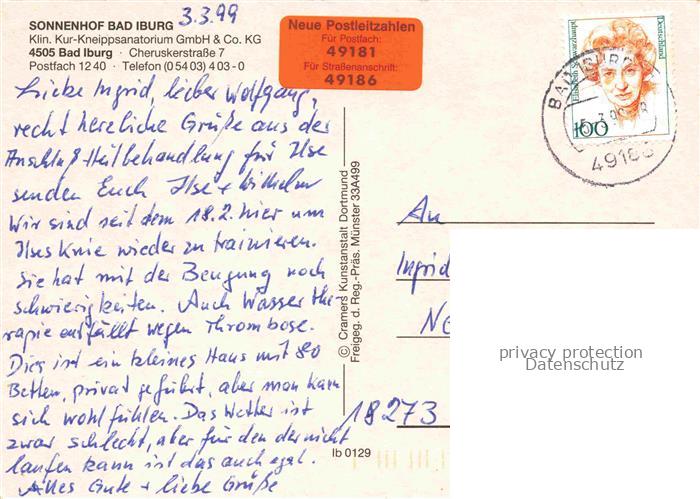 3.3.99
SONNENHOF BAD IBURG
Klin. Kur-Kneippsanatorium GmbH & Co. KG
4505 Bad Iburg · Cheruskerstraße 7
Postfach 12 40 · Telefon (0 54 03) 4 03 - 0
Neue Postleitzahlen
Für Postfach:
49181
Für Straßenanschrift:
49186
Liebe Ingrid, lieber Wolfgang,
recht herzliche Grüße aus der
Anschluß-Heilbehandlung für Ilse
senden Euch Ilse + Wilhelm
Wir sind seit dem 18.2. hier um
Ilses Knie wieder zu trainieren.
Sie hat mit der Beugung noch
schwierigkeiten. Auch Wasser the-
rapie entfällt wegen Thrombose.
Dies ist ein kleines Haus mit 80
Betten, privat geführt, aber man kann
sich wohl fühlen. Das Wetter ist
zwar schlecht, aber für den der nicht
laufen kann ist das auch egal.
Alles Gute + liebe Grüße
© Cramers Kunstanstalt Dortmund
Freigeg. d. Reg.-Präs. Münster 33A499
Ib 0129
Deutschland
Elisabeth Schwarzhaupt
100
BAD IBURG
3.99
4918
An
Ingrid
18273
privacy protection
Datenschutz